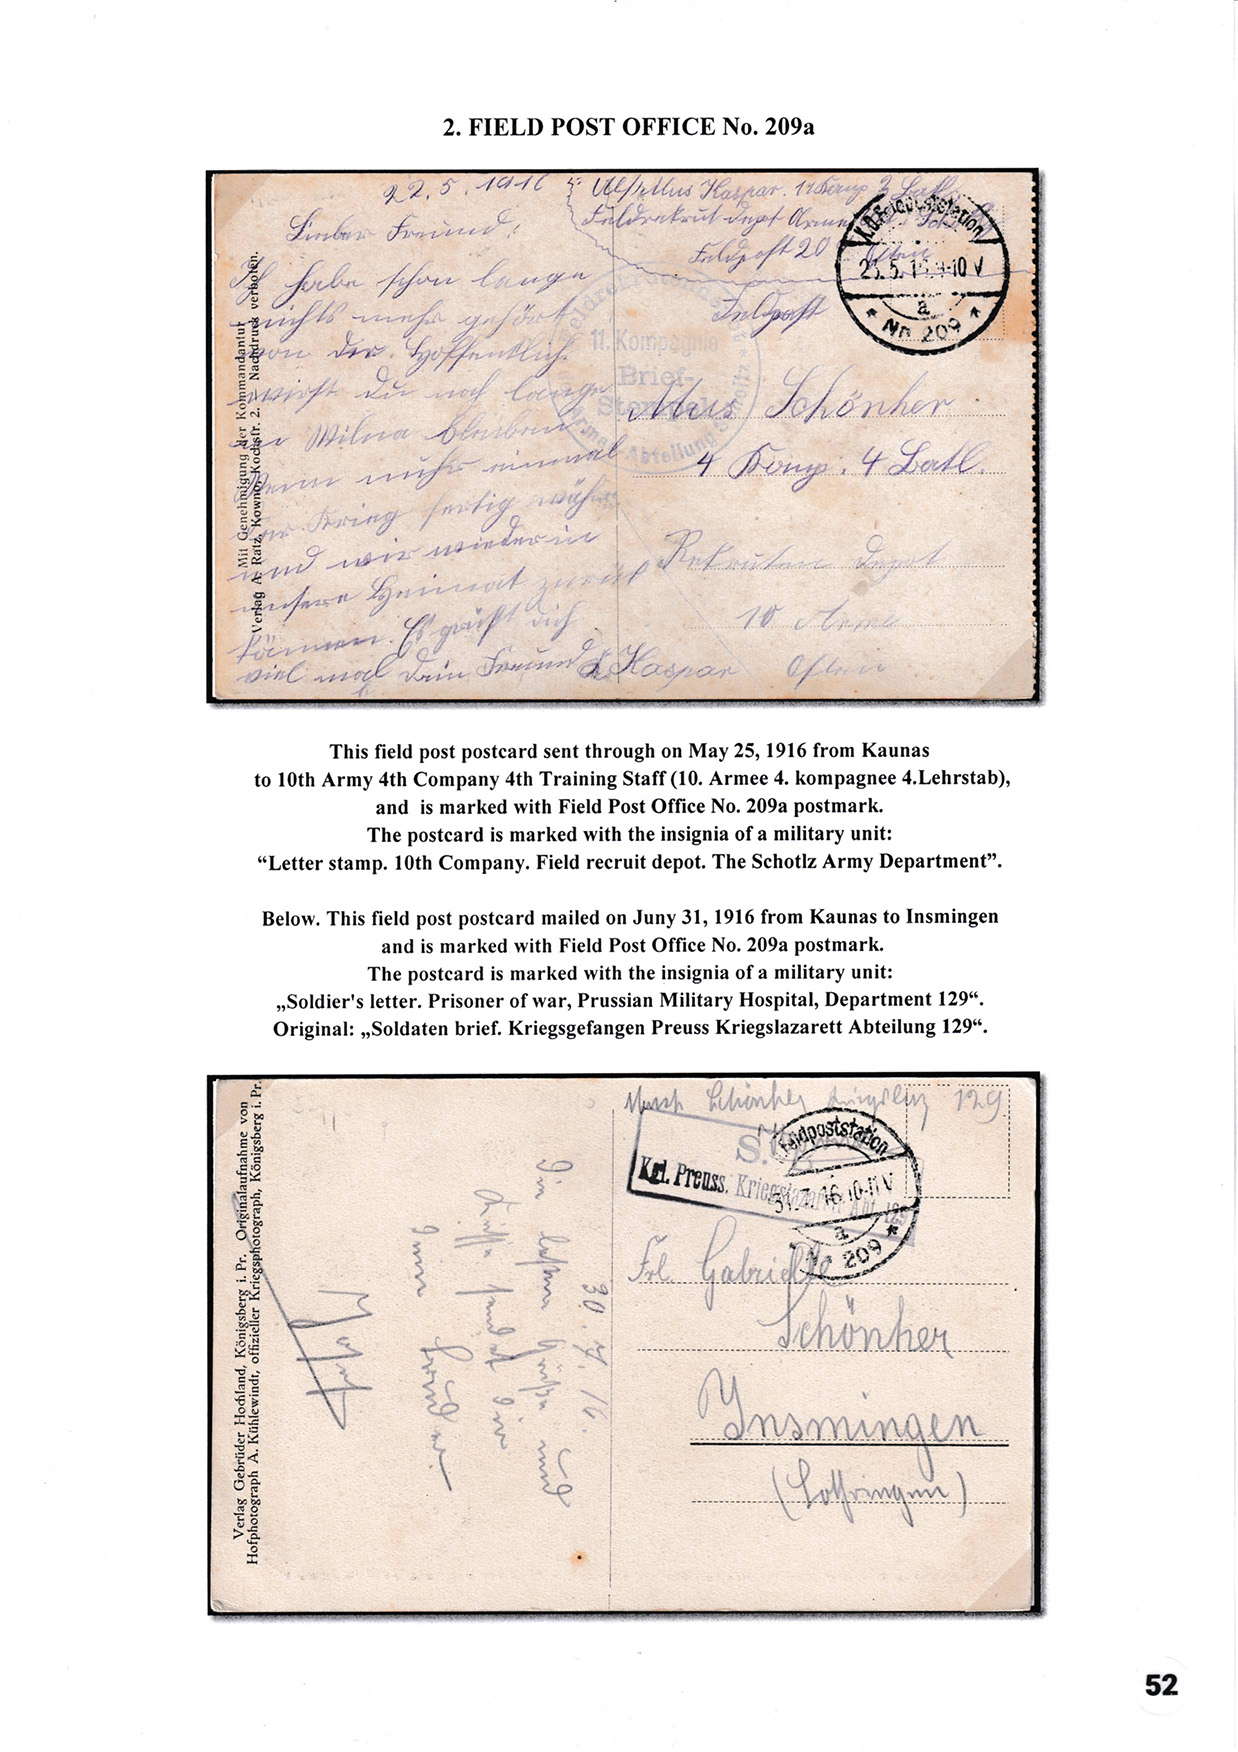 2. FIELD POST OFFICE No. 209a
22.5.1916
Kaspar. 11 Komp 3 Batl
Feldrekrut Dept Armee
Feldpost 20
Lieber Freund!
Ich habe schon lange
nichts mehr gehört
von dir. Hoffentlich
wirst du noch lange
in Wilna bleiben
Wenn nuhr einmal
der Krieg fertig währe
und wir wieder in
unsere Heimat zurück
können. Es grüßt dich
viel mal dein Freund Kaspar
Feldpost
Mus Schönher
4 Komp. 4 Batl.
Rekruten Depot
10 Arme
Osten
Mit Genehmigung der Kommandantur
Verlag A. Ratz, Kowno, Kochstr. 2. — Nachdruck verboten.
11. Kompagnie
Brief-
Stempel
Armee Abteilung Scholtz
K.D. Feldpoststation
25.5.16 9-10 V
a
* No 209 *
This field post postcard sent through on May 25, 1916 from Kaunas
to 10th Army 4th Company 4th Training Staff (10. Armee 4. kompagnee 4.Lehrstab),
and is marked with Field Post Office No. 209a postmark.
The postcard is marked with the insignia of a military unit:
“Letter stamp. 10th Company. Field recruit depot. The Schotlz Army Department”.
Below. This field post postcard mailed on Juny 31, 1916 from Kaunas to Insmingen
and is marked with Field Post Office No. 209a postmark.
The postcard is marked with the insignia of a military unit:
„Soldier's letter. Prisoner of war, Prussian Military Hospital, Department 129“.
Original: „Soldaten brief. Kriegsgefangen Preuss Kriegslazarett Abteilung 129“.
Schönher 129
S.B.
Kgl. Preuss. Kriegslazarett Abt. 129
Feldpoststation
31.7.16 10-11 V
a
No 209 *
30.7.16.
Die besten Grüße und
Küsse sendet dir
dein Bruder
Josef
Frl. Gabrielle
Schönher
Insmingen
(Lothringen)
Verlag Gebrüder Hochland, Königsberg i. Pr. Originalaufnahme von
Hofphotograph A. Kühlewindt, offizieller Kriegsphotograph, Königsberg i. Pr.
52